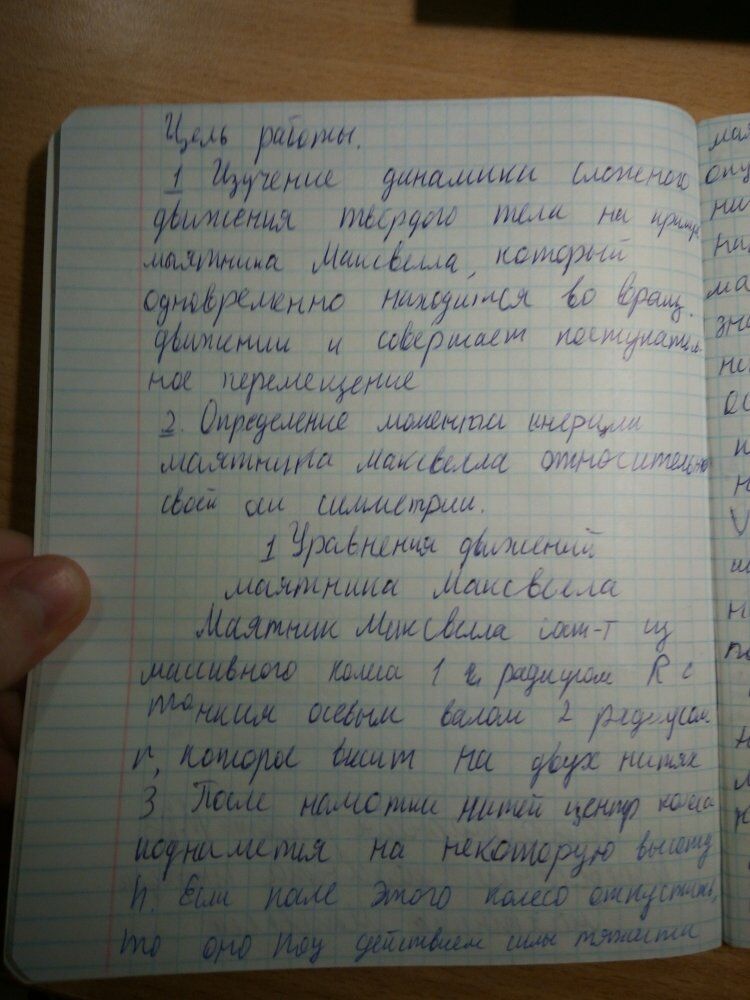 Цель работы.
1 Изучение динамики сложеного
движения твердого тела на пример
маятника Максвелла, который
одновременно находится во вращ.
движении и совершает поступатель-
ное перемещение
2. Определение момента инерции
маятника максвелла относительно
своей оси симметрии.
1 Уравнения движений
маятника Максвелла
Маятник Максвелла сост-т из
массивного колеса 1 с радиусом R с
тонким осевым валом 2 радиусом
r, которое висит на двух нитях
3. После намотки нитей центр колеса
поднимется на некоторую высоту
h. Если после этого колесо отпустить,
то оно под действием силы тяжести
мая
опу
ни
на
ма
зна
но
ос
п
н
V
ш
н
по
н